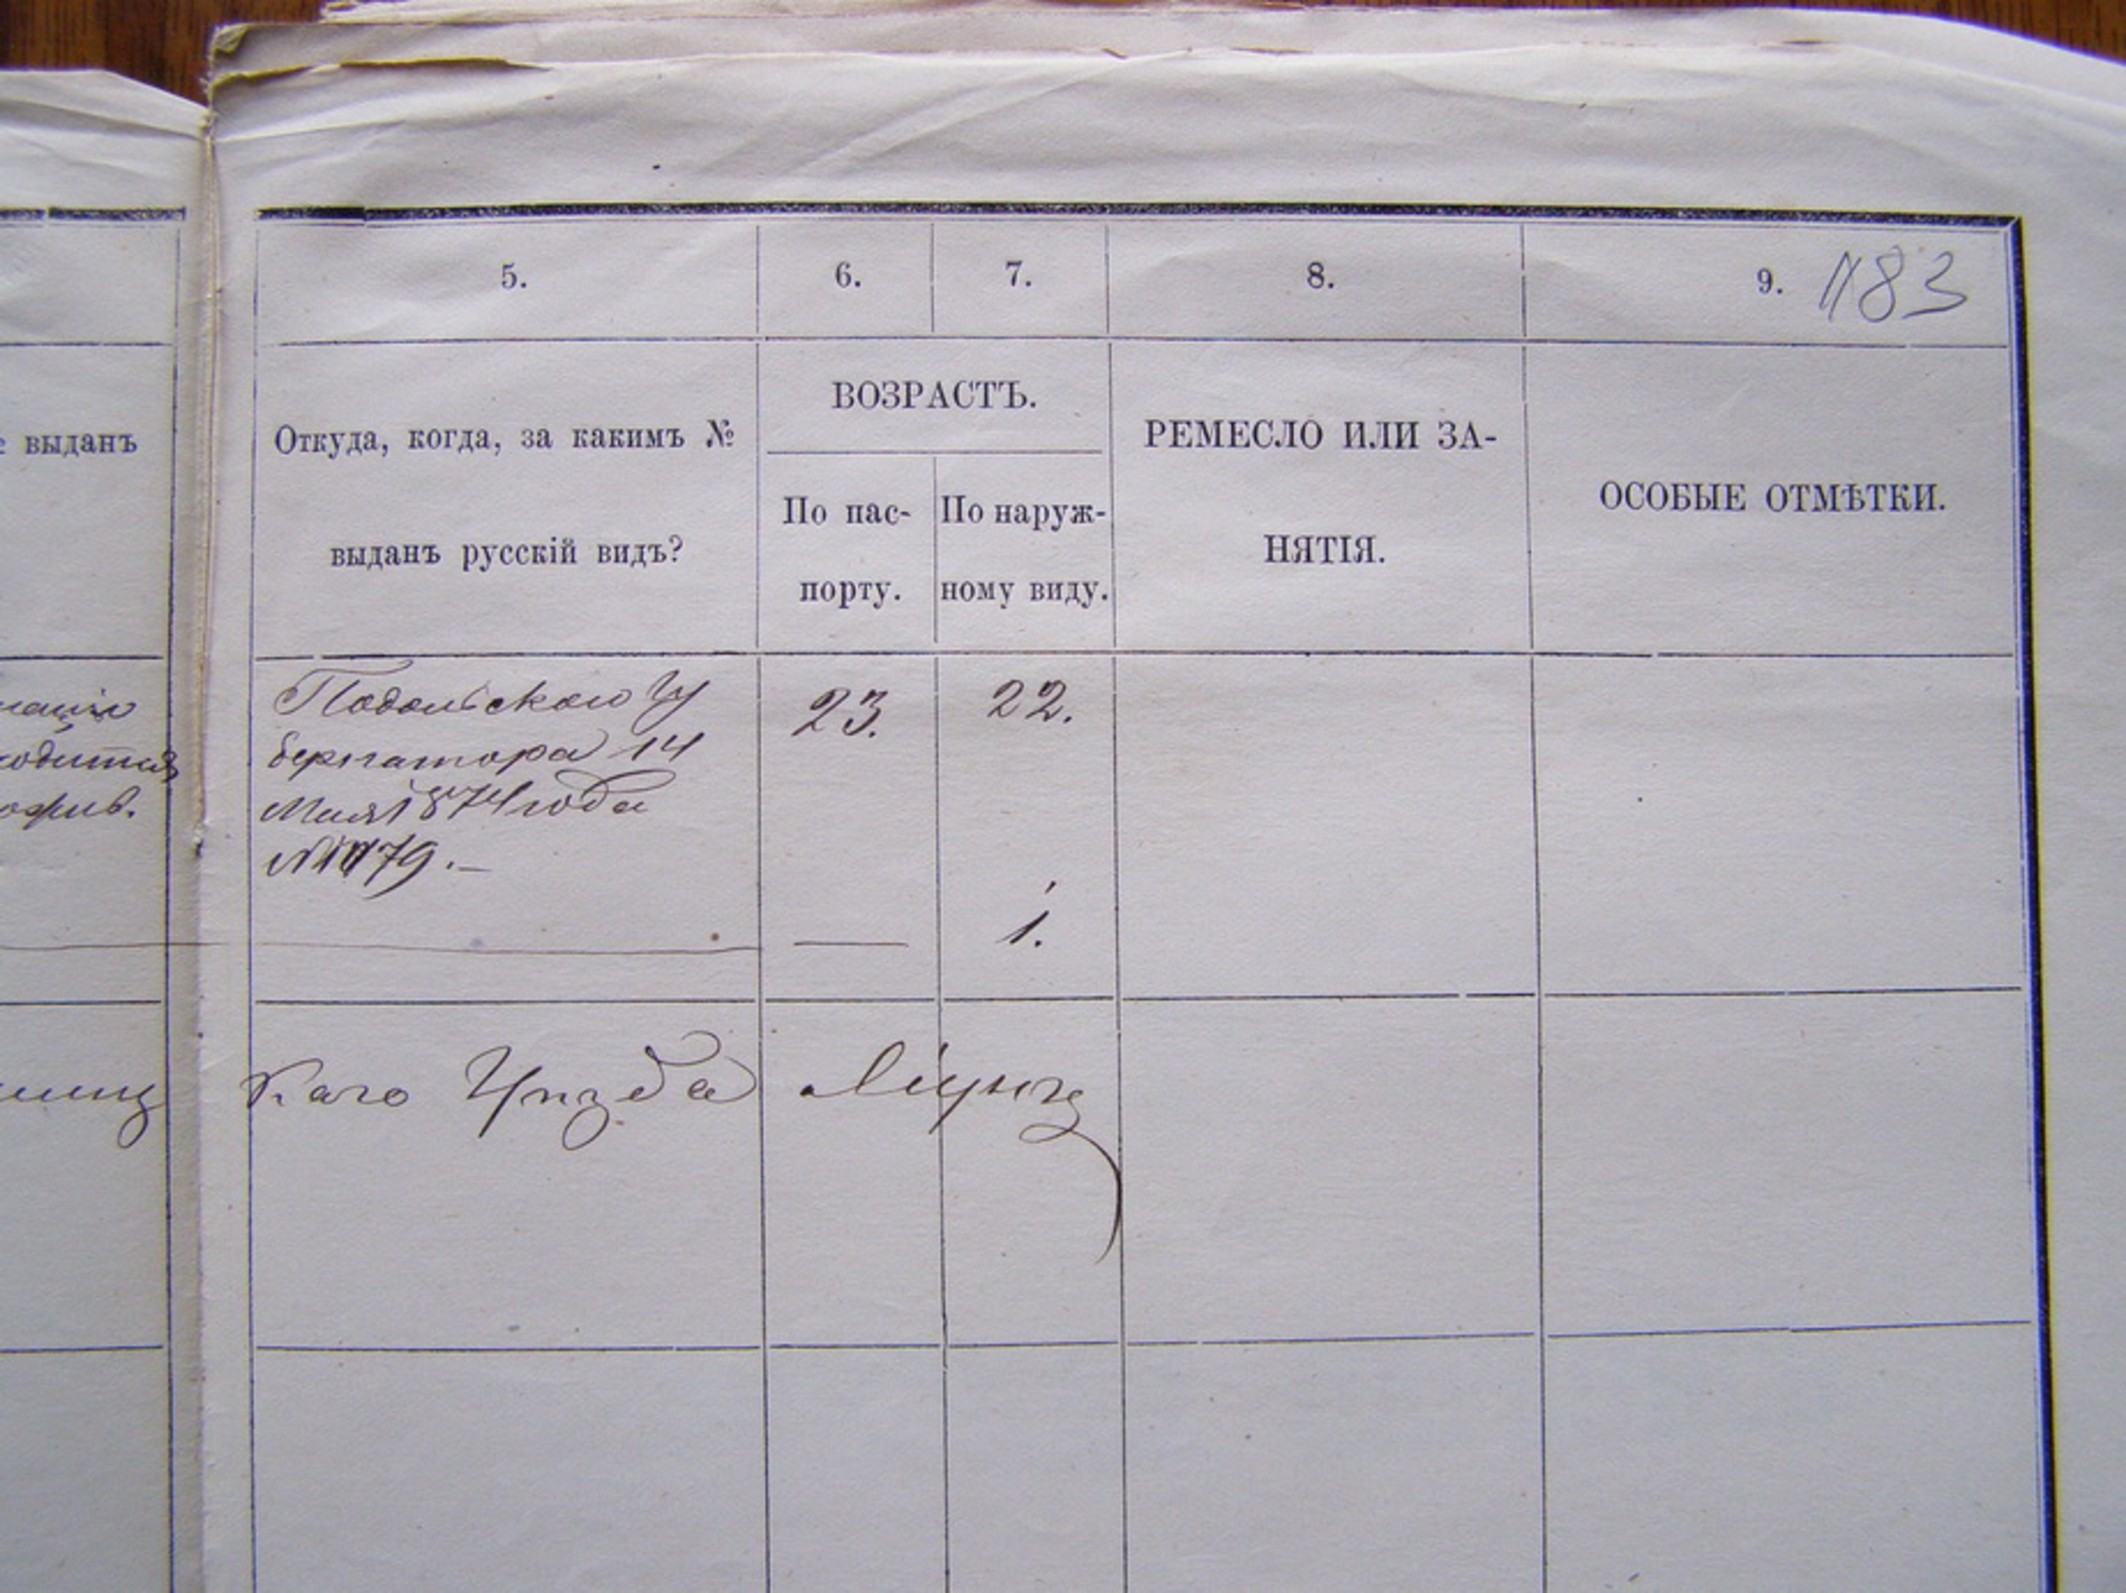 5.
6.
7.
8.
9. 183
выданъ
Откуда, когда, за какимъ №
выданъ русскій видъ?
ВОЗРАСТЪ.
По пас-
порту.
По наруж-
ному виду.
РЕМЕСЛО ИЛИ ЗА-
НЯТІЯ.
ОСОБЫЕ ОТМѢТКИ.
Подольскаго Гу
бернатора 14
Мая 1874 года
23.
22.
1.
каго Уѣзда